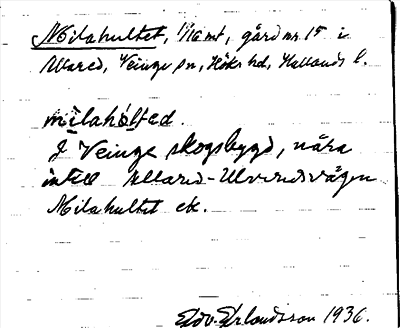 Milahultet, 1/16 mt, gård nr. 15 i
Allared, Veinge sn, Höks hd, Hallands l.
milahòlted.
I Veinge skogsbygd, nära
intill Allared-Ulveredsvägen
Milahultet etc.
Edv. Erlandsson 1936.